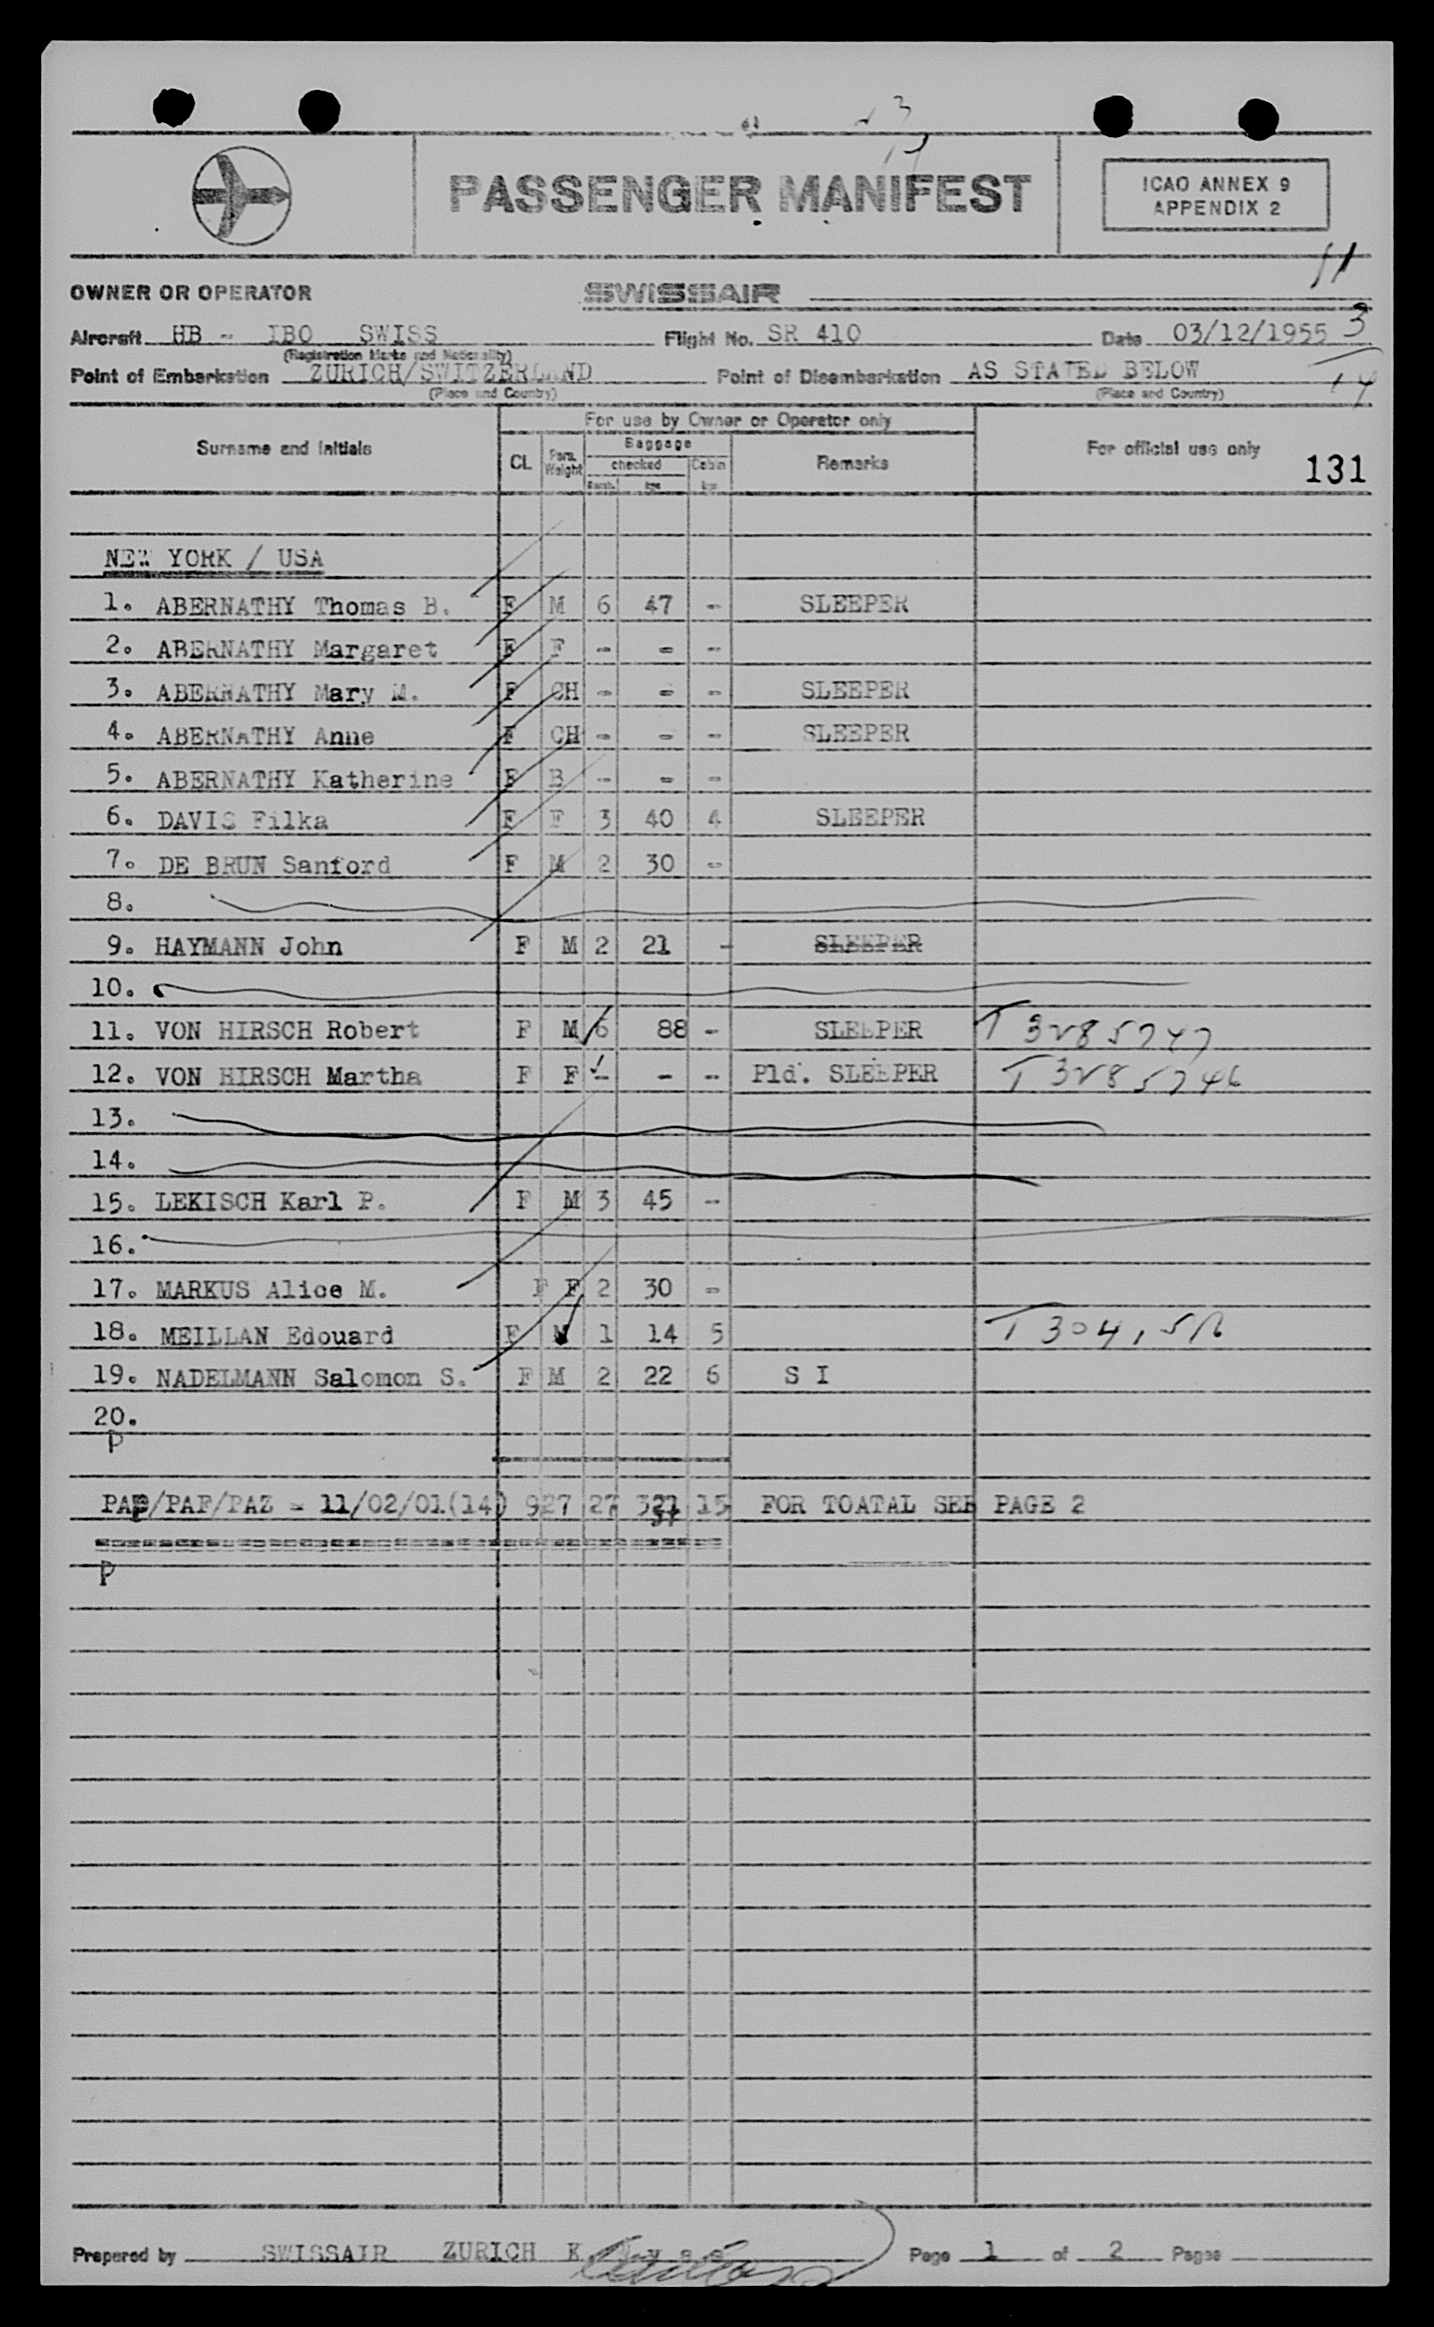 3
PASSENGER MANIFEST
ICAO ANNEX 9
APPENDIX 2
11
OWNER OR OPERATOR SWISSAIR
Aircraft HB - IBO SWISS Flight No. SR 410 Date 03/12/1955 3
(Registration Marks and Nationality)
Point of Embarkation ZURICH/SWITZERLAND Point of Disembarkation AS STATED BELOW 14
(Place and Country) (Place and Country)
For use by Owner or Operator only
Surname and Initials CL. Pers. Weight Baggage checked Cabin Remarks For official use only
kgs kgs
131
NEW YORK / USA
1. ABERNATHY Thomas B. F M 6 47 - SLEEPER
2. ABERNATHY Margaret F F - - -
3. ABERNATHY Mary M. F CH - - - SLEEPER
4. ABERNATHY Anne F CH - - - SLEEPER
5. ABERNATHY Katherine F B - - -
6. DAVIS Filka F F 3 40 4 SLEEPER
7. DE BRUN Sanford F M 2 30 -
8.
9. HAYMANN John F M 2 21 - SLEEPER
10.
11. VON HIRSCH Robert F M 6 88 - SLEEPER T 3285747
12. VON HIRSCH Martha F F - - - Pld. SLEEPER T 3285746
13.
14.
15. LEKISCH Karl P. F M 3 45 -
16.
17. MARKUS Alice M. F F 2 30 -
18. MEILLAN Edouard F M 1 14 5 T 304,
19. NADELMANN Salomon S. F M 2 22 6 S I
20.
P
PAP/PAF/PAZ = 11/02/01(14) 927 27 321 15 FOR TOATAL SEE PAGE 2
37
P
Prepared by SWISSAIR ZURICH K Page 1 of 2 Pages